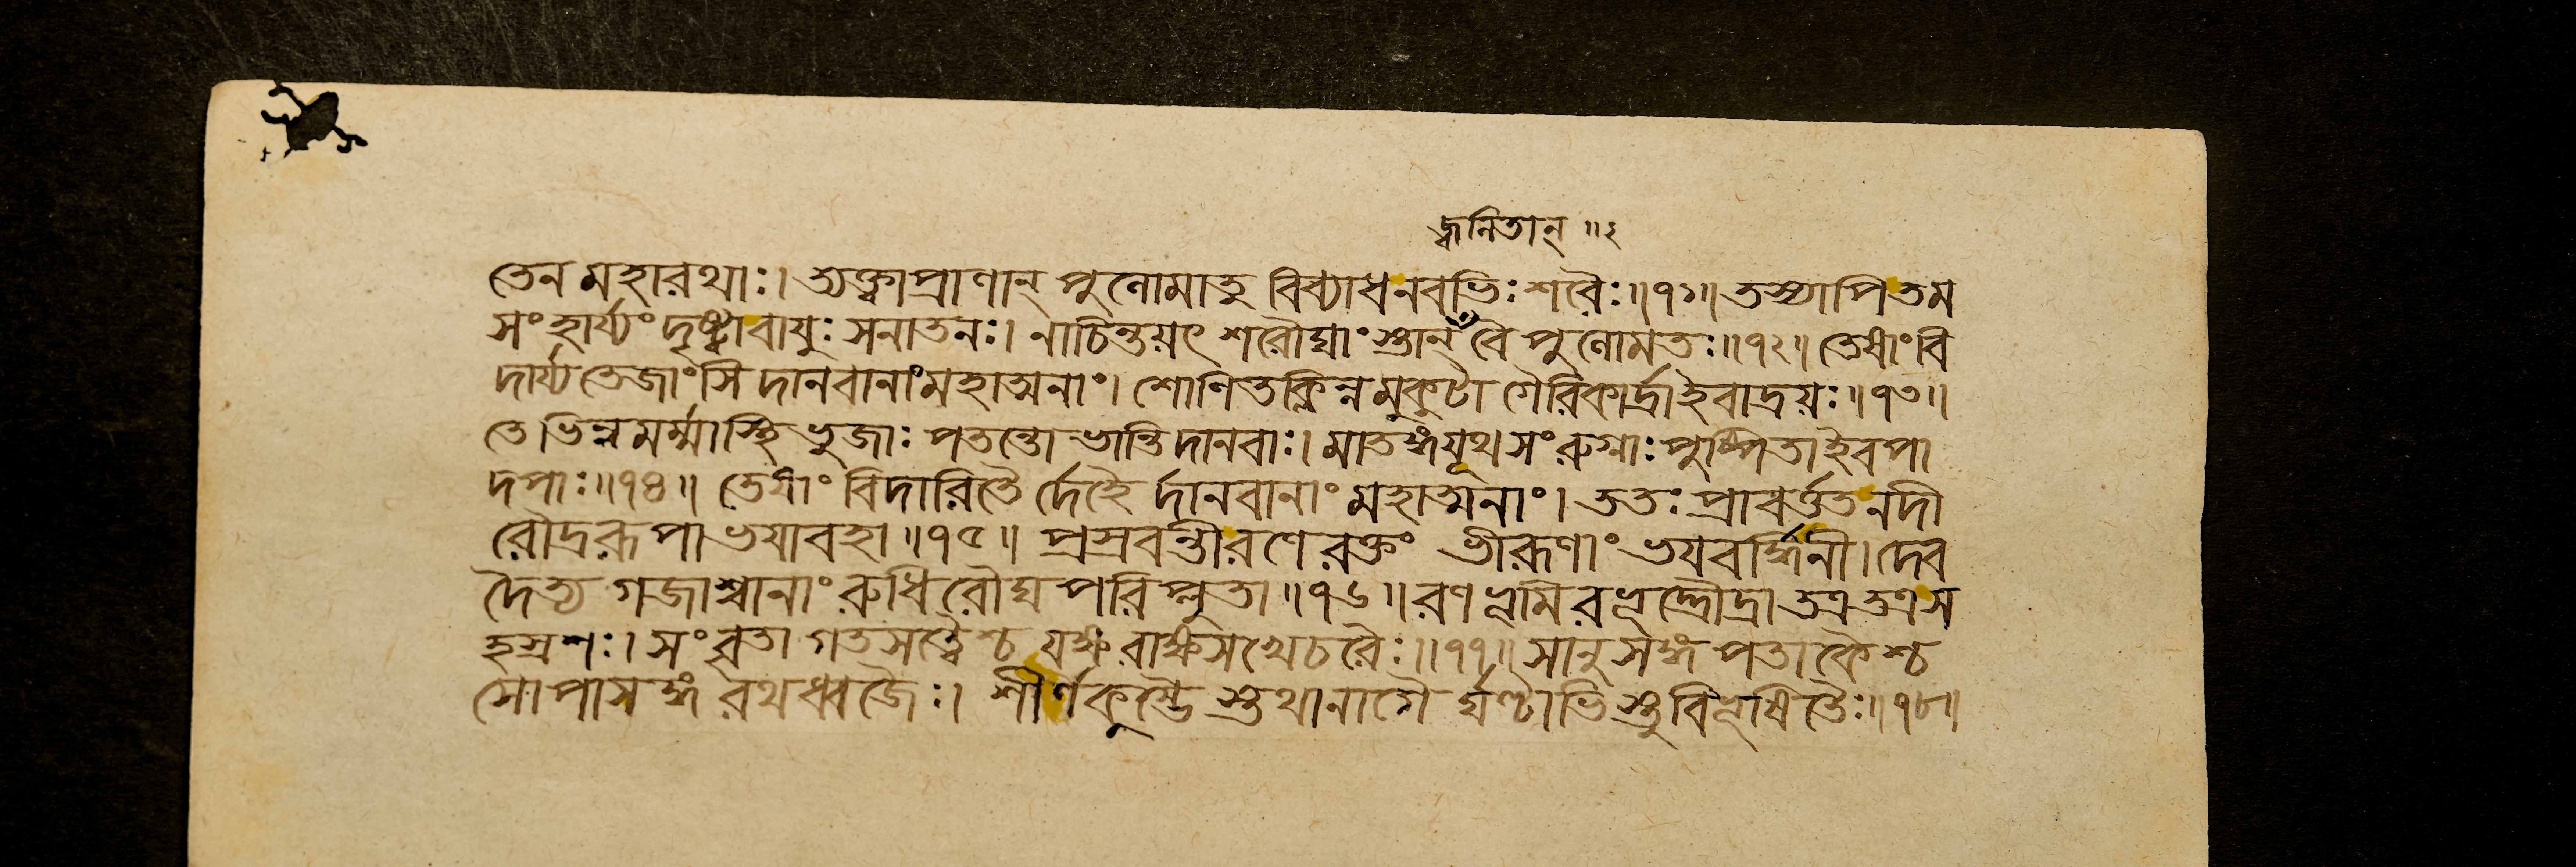 জ্বনিতান্ ॥২
তেন মহারথাঃ। ত্যক্ত্বাপ্রাণান্ পুনোমাতু বিব্যাধনবভিঃ শরৈঃ॥১১॥ তস্যাপিতম
সংহার্য্যং দৃষ্ট্বাবায়ুঃ সনাতনঃ। নাচিন্তয়ৎ শরৌঘাংস্তান্ বৈ পুনোমতঃ॥১২॥ তেষাংবি
দার্য্যতেজাংসি দানবানাংমহাত্মনাং। শোণিতক্লিন্নমুকুটা গৈরিকার্দ্রাইবাদ্রয়ঃ॥১৩॥
তে ভিন্নমর্ম্মাস্থিভুজাঃ পতন্তো ভান্তি দানবাঃ। মাতঙ্গযূথসংরুগ্নাঃ পুষ্পিতাইবপা
দপাঃ॥১৪॥ তেষাং বিদারিতৈ র্দেহৈ র্দানবানাং মহাত্মনাং। ততঃ প্রাবর্ত্ততনদী
রৌদ্ররূপাভয়াবহা॥১৫॥ প্রস্রবন্তীরণেরক্তং ভীরূণাং ভয়বর্দ্ধিনী। দেব
দৈত্য গজাশ্বানাং রুধিরৌঘ পরিপ্লুতা॥১৬॥ রণভূমিরভূদ্রৌদ্রা তত্রতত্রস
হস্রশঃ। সংবৃতা গতসত্ত্বৈশ্চ যক্ষরাক্ষসখেচরৈঃ॥১৭॥ সানুসঙ্গপতাকৈশ্চ
সোপাসঙ্গ রথধ্বজৈঃ। শীর্ণকুম্ভৈ স্তথানাগৈ র্ঘণ্টাভিস্তুবিভূষিতৈঃ॥১৮॥